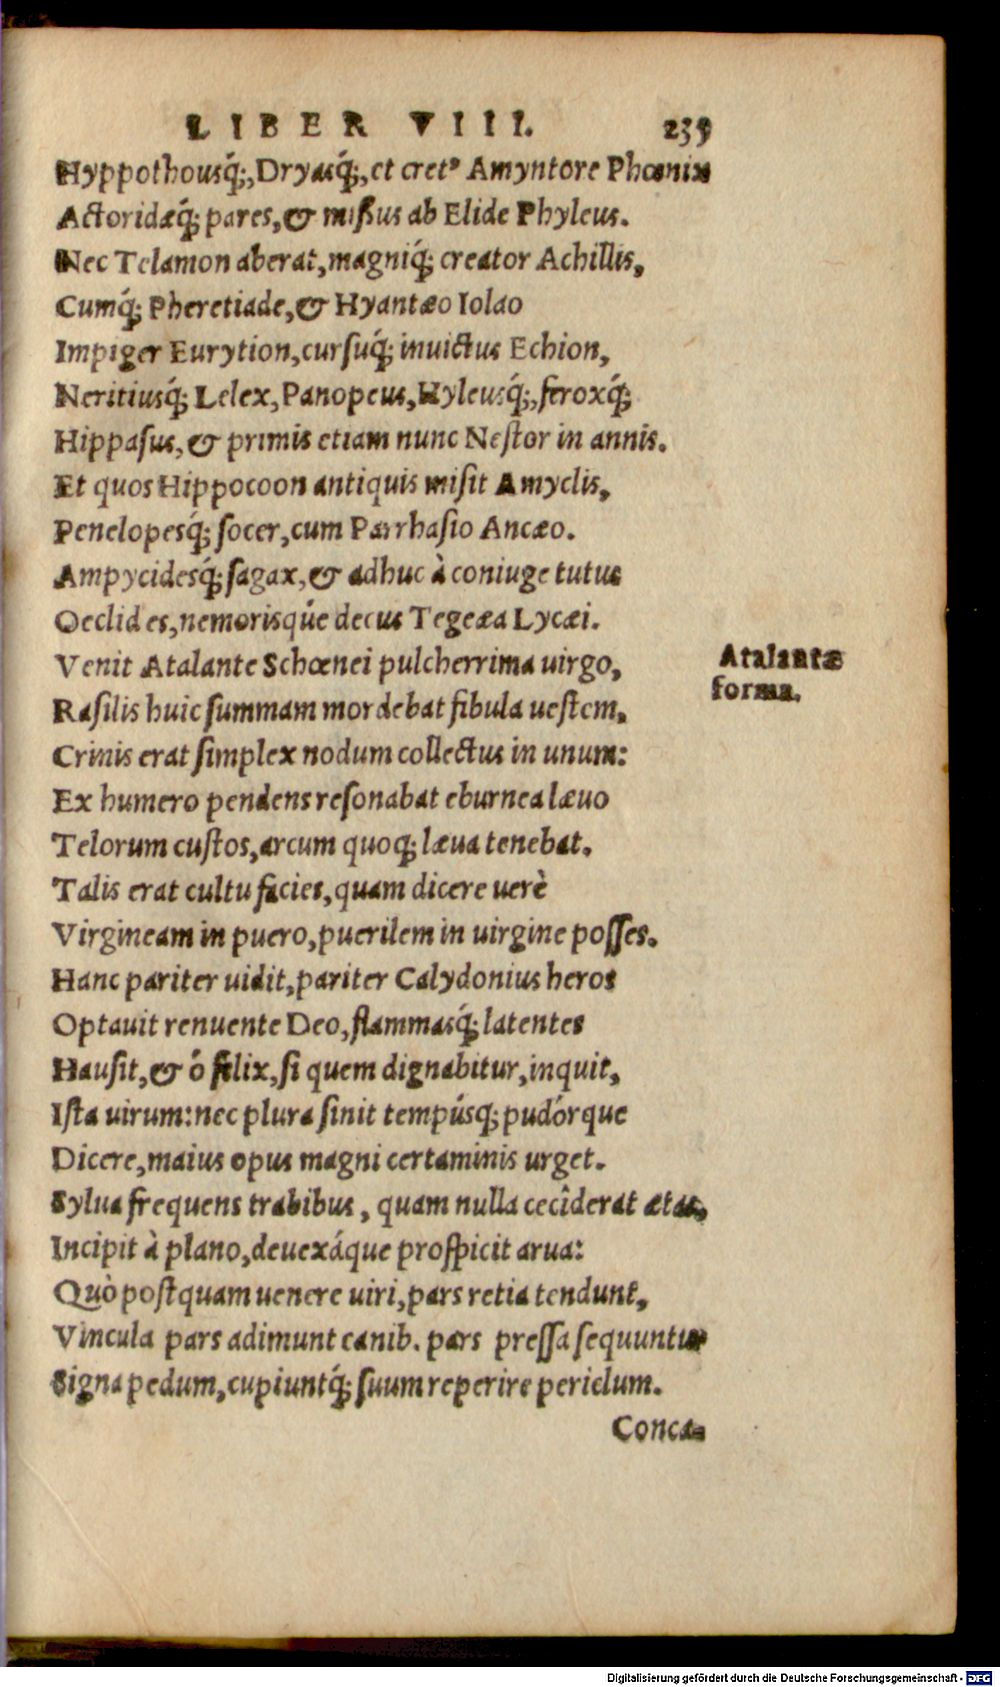 LIBER VIII. 239
Hyppothousq́;, Dryasq́;, et cretꝰ Amyntore Phœnix
Actoridæq́; pares, & mißus ab Elide Phyleus.
Nec Telamon aberat, magniq́; creator Achillis,
Cumq́; Pheretiade, & Hyantæo Iolao
Impiger Eurytion, cursuq́; inuictus Echion,
Neritiusq́; Lelex, Panopeus, Hyleusq́;, feroxq́;
Hippasus, & primis etiam nunc Nestor in annis.
Et quos Hippocoon antiquis misit Amyclis,
Penelopesq́; socer, cum Parrhasio Ancæo.
Ampycidesq́; sagax, & adhuc à coniuge tutus
Oeclides, nemorisqúe decus Tegeæa Lycæi.
Venit Atalante Schœnei pulcherrima uirgo,
Atalantæ
forma.
Rasilis huic summam mordebat fibula uestem,
Crinis erat simplex nodum collectus in unum:
Ex humero pendens resonabat eburnea læuo
Telorum custos, arcum quoq; læua tenebat.
Talis erat cultu facies, quam dicere uerè
Virgineam in puero, puerilem in uirgine posses.
Hanc pariter uidit, pariter Calydonius heros
Optauit renuente Deo, flammasq́; latentes
Hausit, & ó felix, si quem dignabitur, inquit,
Ista uirum: nec plura sinit tempúsq; pudórque
Dicere, maius opus magni certaminis urget.
Sylua frequens trabibus, quam nulla cecîderat ætas,
Incipit à plano, deuexáque prospicit arua:
Quò postquam uenere uiri, pars retia tendunt,
Vincula pars adimunt canib. pars pressa sequuntur
Signa pedum, cupiuntq́; suum reperire periclum.
Conca-
Digitalisierung gefördert durch die Deutsche Forschungsgemeinschaft - DFG